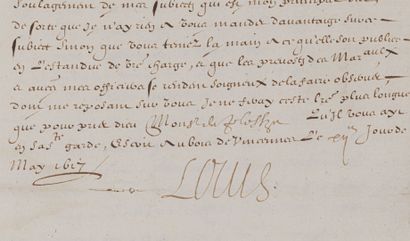 soulagement de mes subiectz qui est mon principal
de sorte que Je n'ay rien a vous mander davantaige sur ce
subiect sinon que vous teniez la main a ce qu'elle soit publiee
en l'estandue de vre charge, et que les prevostz des Mar.aulx
et aucuns mes officiers se rendent soigneux de la faire observer,
dont me reposant sur vous Je ne feray ceste lre plus longue
que pour prier dieu Mons.r de Qu'Il vous ayt
en sa s.te garde, Escrit au bois de Vincennes Le xij.e Jour de
May 1617
Louis